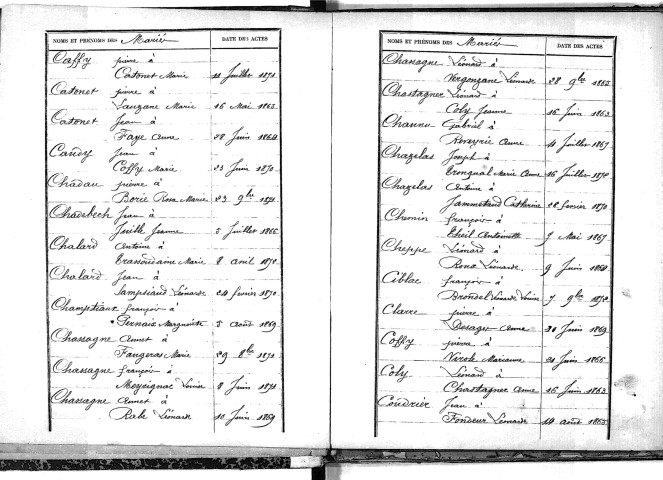 NOMS ET PRÉNOMS DES Mariés DATE DES ACTES
Caffy pierre à
Catonet Marie 11 Juillet 1871
Catonet pierre à
Lauzane Marie 16 Mai 1863
Catonet Jean à
Faye Anne 28 Juin 1864
Caudy Jean à
Coffy Marie 23 Juin 1870
Chadau pierre à
Borie Rose Marie 23 9bre 1871
Chadebech Jean à
Jaeille Jeanne 5 Juillet 1866
Chalard Antoine à
Trassoudaine Marie 8 avril 1870
Chalard Jean à
Léonarde 24 fevrier 1870
françois à
Pernaie Marguerite 5 août 1869
Chassagne Annet à
Faugeras Marie 29 8bre 1871
Chassagne françois à
Meyrignac 8 Juin 1871
Chassagne Annet à
Rabe Léonarde 10 Juin 1869
NOMS ET PRÉNOMS DES Mariés DATE DES ACTES
Chassagne Léonard à
Vergonzane Léonarde 28 9bre 1862
Chastagner Léonard à
Coly Jeanne 16 Juin 1863
Gabriel à
Reveyrie Anne 4 Juillet 1867
Chazelas Joseph à
Tronqual Marie Anne 16 Juillet 1872
Chazelas Antoine à
Catherine 28 fevrier 1870
Chemin françois à
Theil Antoinette 7 Mai 1867
Cheppe Léonard à
Léonarde 9 Juin 1864
Ciblac françois à
Brondel Léonarde Louise 7 9bre 1872
Clare pierre à
Desager Anne 30 Juin 1869
Coffy pierre à
Marianne 21 Juin 1866
Coly Léonard à
Chastagner Anne 16 Juin 1863
Coudrier Jean à
Fondeur Léonarde 14 août 1865